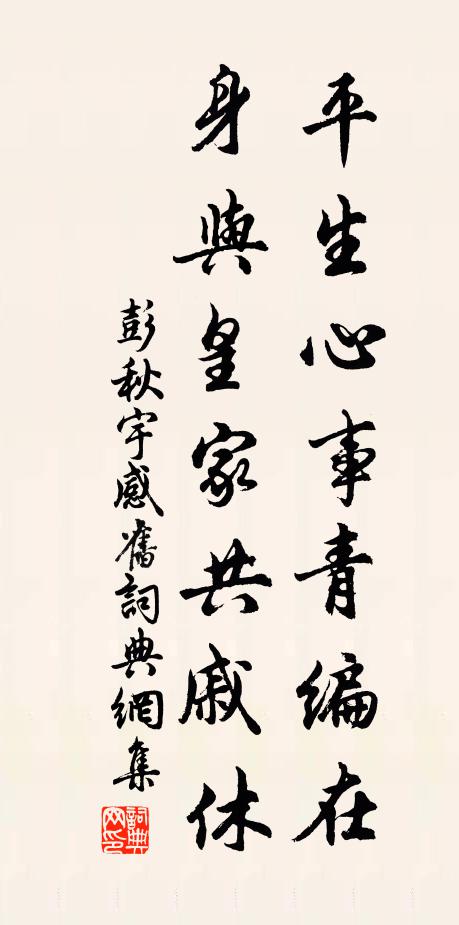 平生心事青編在
身與皇家共戚休
彭秋宇感舊詞典網集
詞典网印